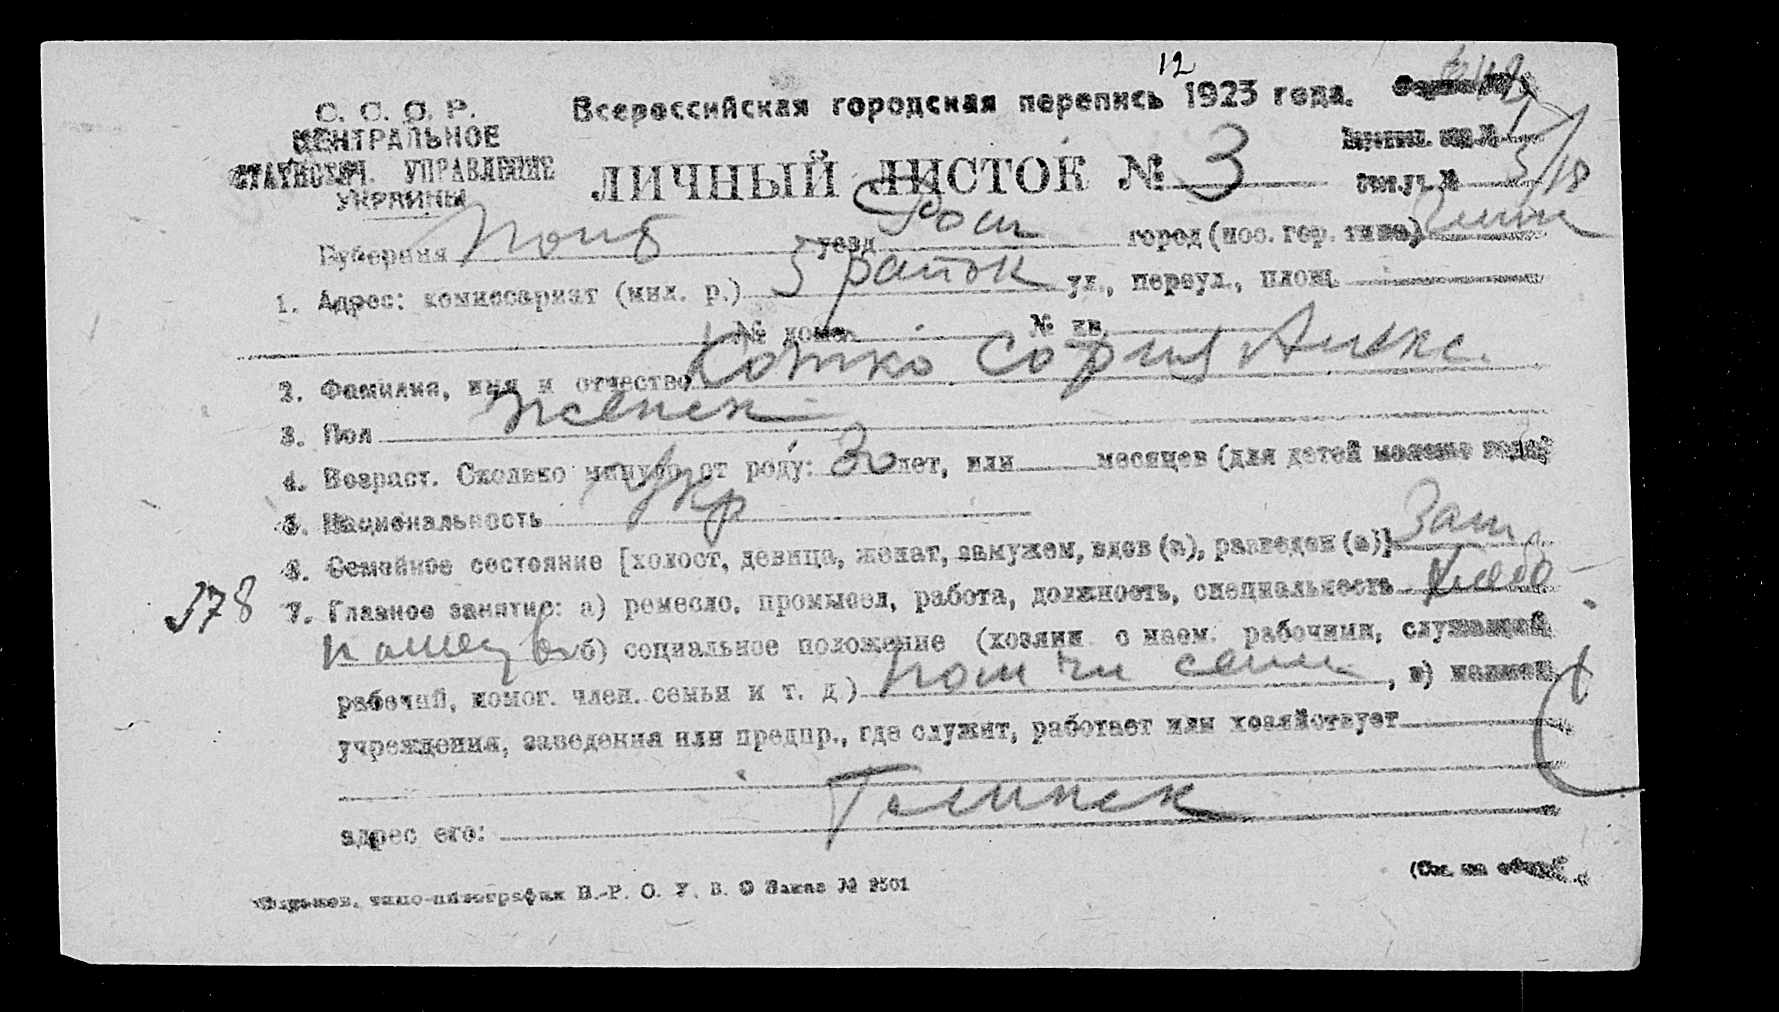 12
С. С. С. Р.
ЦЕНТРАЛЬНОЕ
СТАТИСТИЧ. УПРАВЛЕНИЕ
УКРАИНЫ
Всероссийская городская перепись 1923 года.
ЛИЧНЫЙ ЛИСТОК № 3
5/18
Губерния Полт уезд город (пос. гор. типа)
1. Адрес: комиссариат (мил. р.) 5 район ул., переул., площ.
№ дома № кв.
2. Фамилия, имя и отчество Котко София Алекс.
3. Пол женск
4. Возраст. Сколько минуло от роду: 30 лет, или месяцев (для детей моложе года)
5. Национальность Укр
6. Семейное состояние [холост, девица, женат, замужем, вдов (а), разведен (а)] Зам
378 7. Главное занятие: а) ремесло, промысел, работа, должность, специальность Хлеб
б) социальное положение (хозяин с наем. рабочими, служащий
рабочий, помог. член. семьи и т. д.) пом чл семи, в) наимен.
учреждения, заведения или предпр., где служит, работает или хозяйствует
адрес его:
типо-литография В.-Р. О. У. В. О Заказ № 2501
(См. на обор